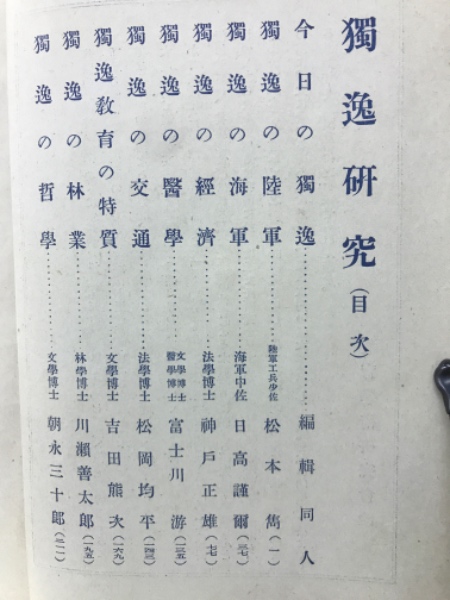 獨逸硏究(目次)
今日の獨逸……………………編輯同人
獨逸の陸軍……………陸軍工兵少佐 松本雋(一)
獨逸の海軍……………海軍中佐 日高謹爾(三七)
獨逸の經濟……………法學博士 神戶正雄(七七)
獨逸の醫學……………文學博士 醫學博士 富士川游(一三五)
獨逸の交通……………法學博士 松岡均平(一四三)
獨逸敎育の特質……………文學博士 吉田熊次(一六九)
獨逸の林業……………林學博士 川瀨善太郎(一九五)
獨逸の哲學……………文學博士 朝永三十郎(二一一)